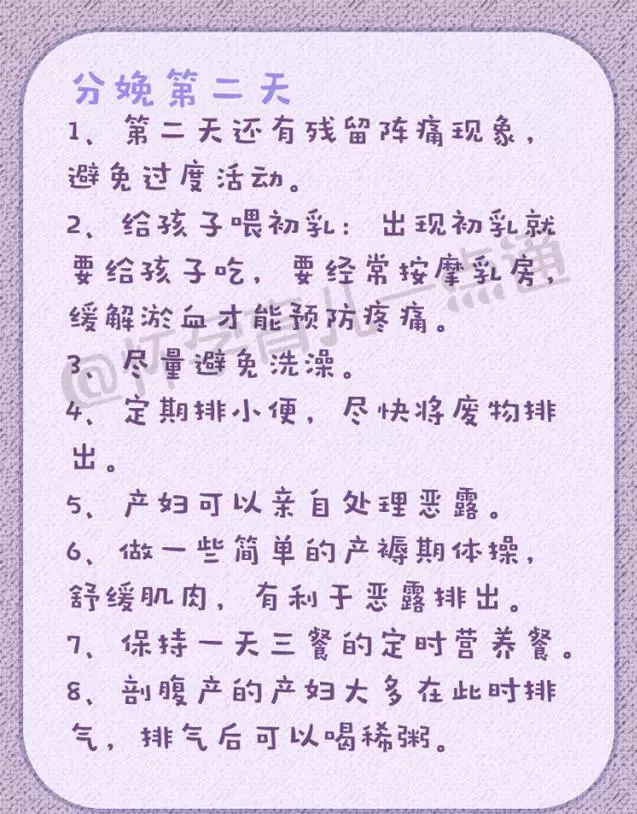 分娩第二天
1、第二天还有残留阵痛现象，
避免过度活动。
2、给孩子喂初乳：出现初乳就
要给孩子吃，要经常按摩乳房，
缓解淤血才能预防疼痛。
3、尽量避免洗澡。
4、定期排小便，尽快将废物排
出。
5、产妇可以亲自处理恶露。
6、做一些简单的产褥期体操，
舒缓肌肉，有利于恶露排出。
7、保持一天三餐的定时营养餐。
8、剖腹产的产妇大多在此时排
气，排气后可以喝稀粥。
@怀孕育儿一点通